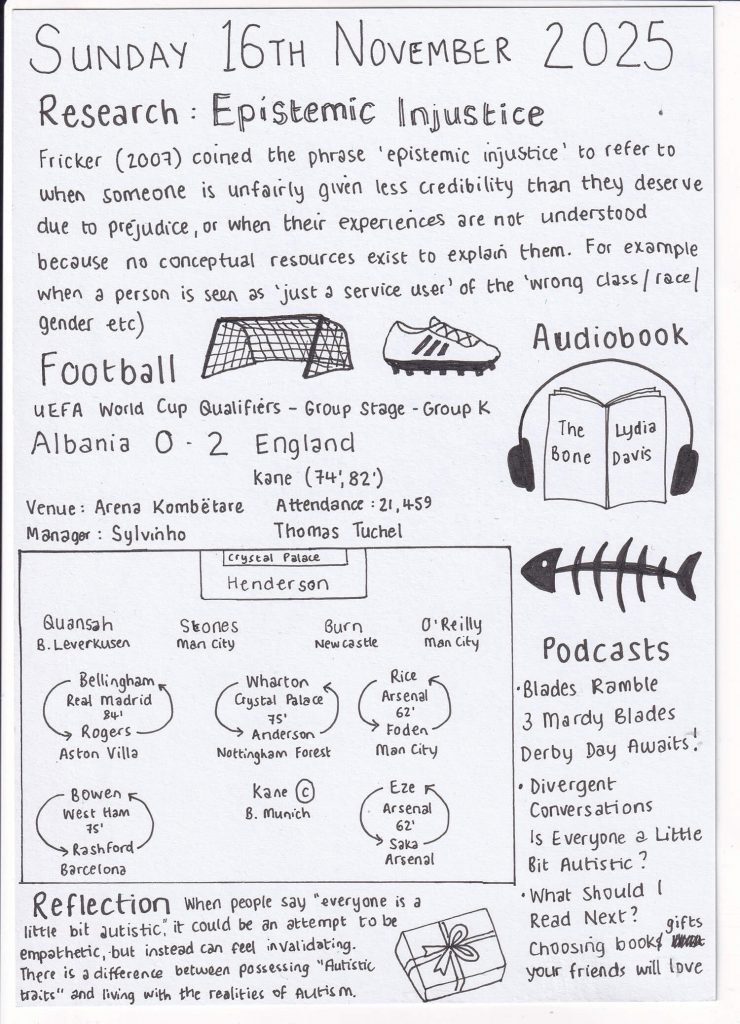 SUNDAY 16TH NOVEMBER 2025
Research : Epistemic Injustice
Fricker (2007) coined the phrase 'epistemic injustice' to refer to
when someone is unfairly given less credibility than they deserve
due to prejudice, or when their experiences are not understood
because no conceptual resources exist to explain them. For example
when a person is seen as 'just a service user' of the 'wrong class/race/
gender etc)
Football
UEFA World Cup Qualifiers - Group Stage - Group K
Albania 0 - 2 England
Kane (74', 82')
Venue: Arena Kombëtare Attendance : 21,459
Manager : Sylvinho Thomas Tuchel
Crystal Palace
Henderson
Quansah Stones Burn O'Reilly
B. Leverkusen Man City Newcastle Man City
Bellingham Wharton Rice
Real Madrid Crystal Palace Arsenal
84' 75' 62'
Rogers Anderson Foden
Aston Villa Nottingham Forest Man City
Bowen Kane C Eze
West Ham B. Munich Arsenal
75' 62'
Rashford Saka
Barcelona Arsenal
Audiobook
The Lydia
Bone Davis
Podcasts
• Blades Ramble
3 Mardy Blades
Derby Day Awaits!
• Divergent
Conversations
Is Everyone a Little
Bit Autistic?
• What Should I
Read Next?
Choosing book gifts
your friends will love
Reflection When people say "everyone is a
little bit autistic," it could be an attempt to be
empathetic, but instead can feel invalidating.
There is a difference between possessing "Autistic
traits" and living with the realities of Autism.